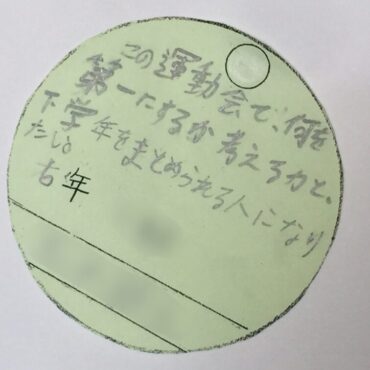 この運動会で、何を
第一にするか考える力と、
下学年をまとめられる人になり
たい。
六年